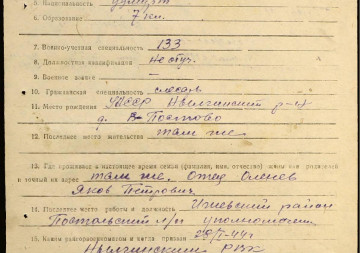 5. Национальность удмурт
6. Образование 7 кл.
7. Военно-учетная специальность 133
8. Должностная квалификация Не обуч.
9. Военное звание —
10. Гражданская специальность слесарь
11. Место рождения УАССР Нылгинский р-н
д. Постково
12. Последнее место жительства там же
13. Где проживает в настоящее время семья (фамилия, имя, отчество) жены или родителей
и точный их адрес там же. Отец
Яков Петрович
14. Последнее место работы и должность район
Постольский л/п
15. Каким райвоенкоматом и когда призван
Нылгинским РВК